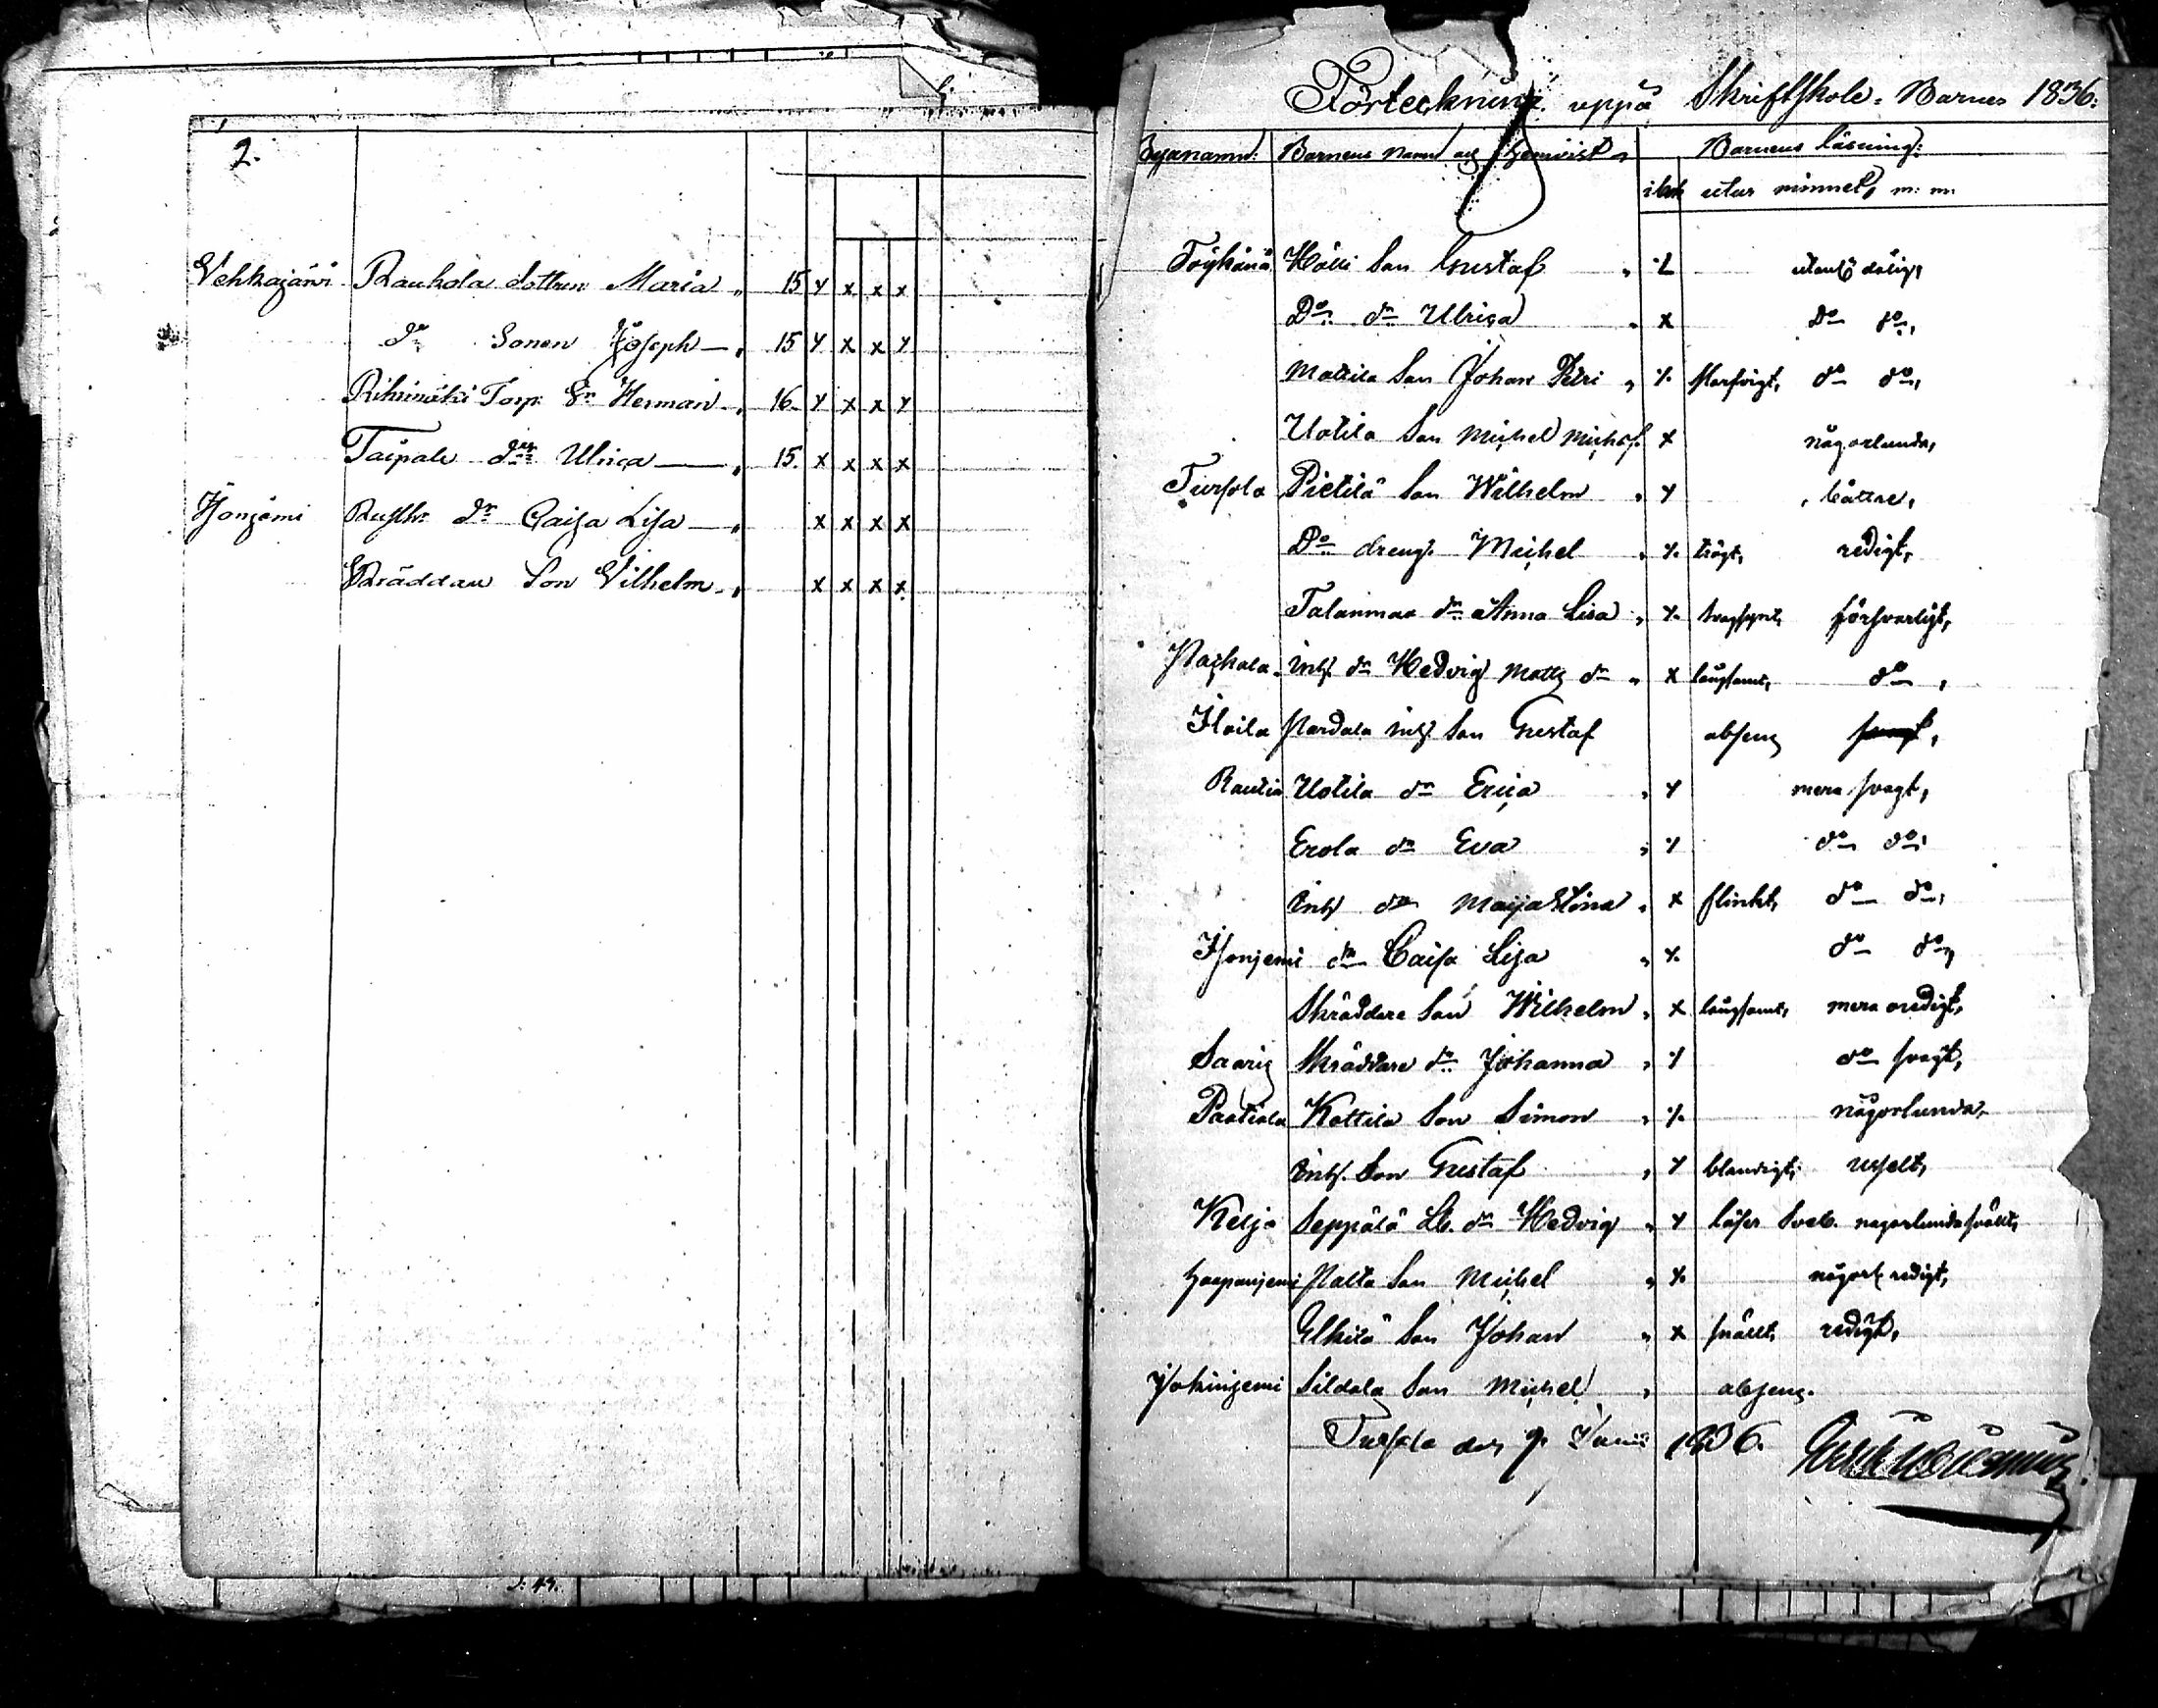 2.
Vehkajärvi Raukola dottren Maria 15 x x x x
do Sonen Joseph 15 x x x x
Rihimäki Torp. Sn Herman 16. x x x x
Taipale dr Ulrica 15. x x x x
Isonjemi dr Caisa Lisa x x x x
Skräddare Son Vilhelm x x x x
Förteckning uppå Skriftskole-Barnen 1836.
Byanamn: Barnens Namn och Hemvist Barnens läsning:
i bok utur minnet, m: m:
Töyhänä Hölli Son Gustaf utantill dålig,
Do dr Ulrica x Do do,
Mattila Son Johan Petri x do do,
Uotila Son Michel x någorlunda,
Tursola Pietilä Son Wilhelm x bättre,
Do dreng. Michel x trögt, redigt,
Talanmaa dr Anna Lisa x svagsynt, försvarligt,
Inh. dr Hedvig Matts dr x långsamt, do,
Iloila Inh. Son Gustaf absens
Rautia Uotila dr Erica x mera svagt,
Erola dr Eva x do do,
Inh. dr Maija Stina x flinkt, do do,
Isonjemi dr Caisa Lisa x do do,
Skräddare Son Wilhelm x långsamt, mera oredigt,
Saaris Skräddare dr Johanna x do svagt,
Kettila Son Simon x någorlunda,
Inh. Son Gustaf x uselt,
Keljo Seppälä dr Hedvig x läser
Haapanjemi Son Michel x någorl. redigt,
Son Johan x snällt, redigt,
Jokinjemi Sildala Son Michel absens.
Tursola den 9. Junii 1836.
J: 49.